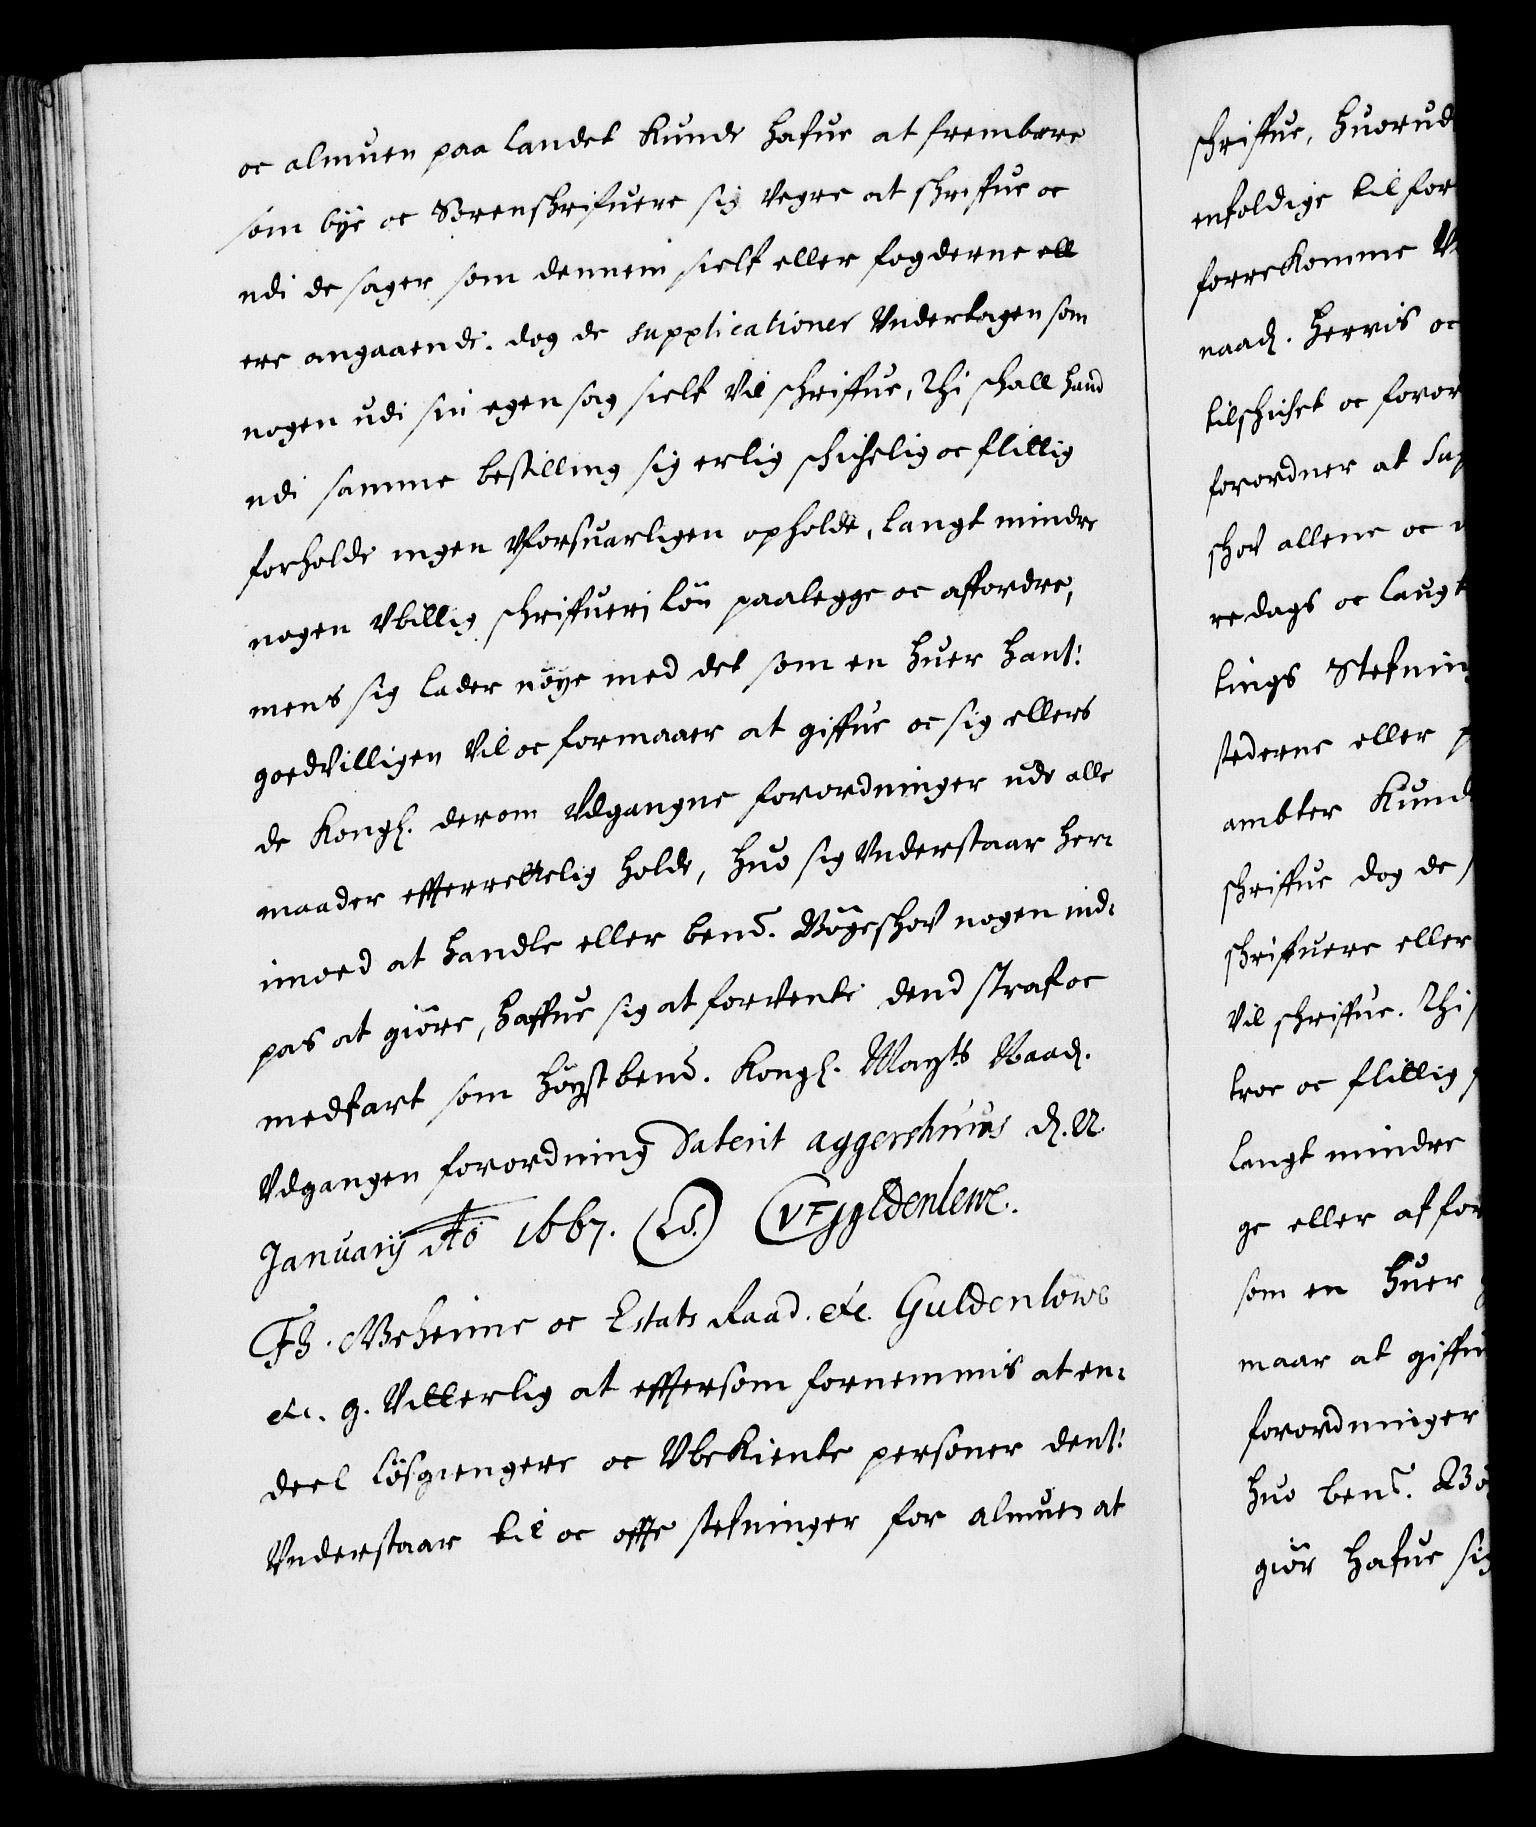 oc almuen paa landet kunde hafue at frembære
som bÿe oc Sorenskrifuere sig vegre at schriffue oc
udi de sager som dennem sielf eller fogderne ell
ere angaaende. dog de supplicationer Undertagen som
nogen udi sin egen sag sielf vil schriffue, Thi schall hand
udi samme bestilling sig erlig schichelig oc flittig
forholde ingen Uforsuarligen opholde, langt mindre
nogen Ubillig schriffuerj løn paalegge oc affordre,
mens sig lader nøye med det som en huer hant:
goedvilligen vil oc formaaer at giffue oc sig ellers
de Kongl. derom Udgangne forordninger udi alle
maader efterrettelig holde, huo sig Understaar her-
imoed at handle eller bem.t Bøgeschov nogen ind-
pas at giøre, haffue sig at forvente dend straf oc
medfart som høystbem.t Kongl. Mayts Naad.
Udgangen forordning Datert aggershuus d. 22.
Januarij Ao 1667. (LS.) VFgyldenlewe.
FB. Geheime oc Estats Raad. etc. Guldenlöwe
etc. g. vitterlig at effersom fornemmis at en-
deel løsgiengere oc Ubekiente personer dent:
Understaar til oc ofte stefninger for almuen at
schriffue, huorud
enfoldige til for
forrekomme
naad. hervis oc
tilschichet oc foror
forordner at
schov allene oc
redags oc laugt
tings Stefnin
stederne eller
ambter kund
schriffue dog de
schrifuere eller
vil schriffue. Thi
troe oc flittig
langt mindre
ge eller affor
som en huer
maar at giffu
forordninger
huo bem.t Bø
giør hafue sig